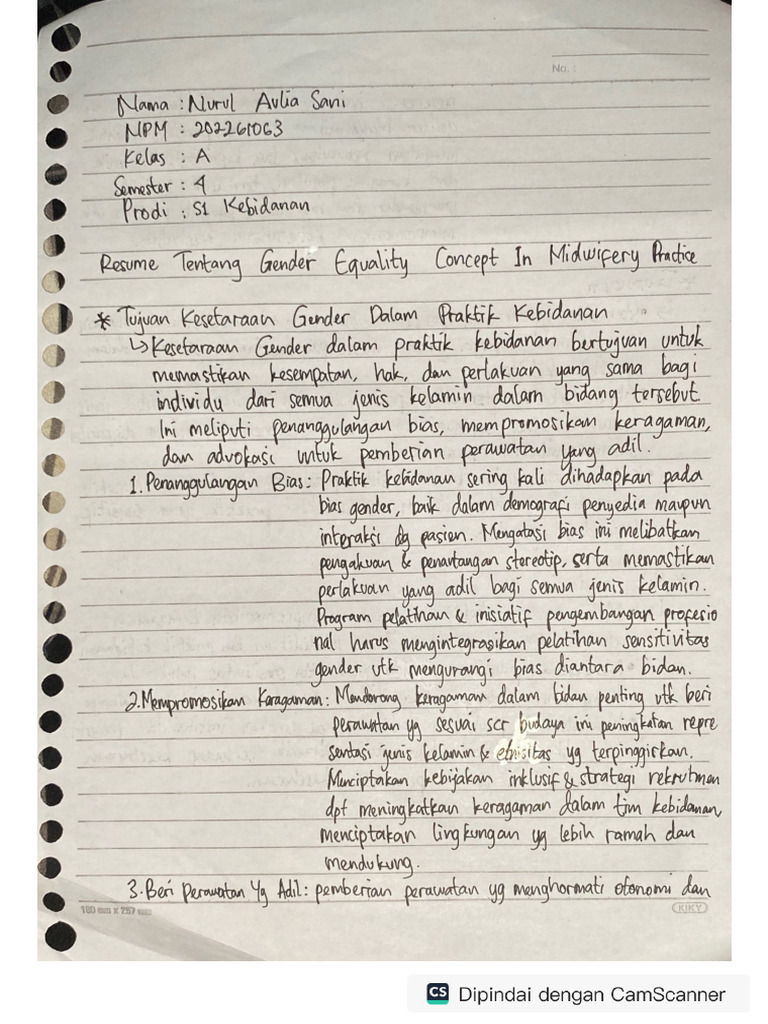 No. :
Nama : Nurul Aulia Sani
NPM : 202261063
Kelas : A
Semester : 4
Prodi : S1 Kebidanan
Resume Tentang Gender Equality Concept In Midwifery Practice
* Tujuan Kesetaraan Gender Dalam Praktik Kebidanan
↳ Kesetaraan Gender dalam praktik kebidanan bertujuan untuk
memastikan kesempatan, hak, dan perlakuan yang sama bagi
individu dari semua jenis kelamin dalam bidang tersebut
Ini meliputi penanggulangan bias, mempromosikan keragaman,
dan advokasi untuk pemberian perawatan yang adil.
1. Penanggulangan Bias : Praktik kebidanan sering kali dihadapkan pada
bias gender, baik dalam demografi penyedia maupun
interaksi dg pasien. Mengatasi bias ini melibatkan
pengakuan & penantangan stereotip, serta memastikan
perlakuan yang adil bagi semua jenis kelamin.
Program pelatihan & inisiatif pengembangan profesio
nal harus mengintegrasikan pelatihan sensitivitas
gender utk mengurangi bias diantara bidan.
2. Mempromosikan Karagaman : Mendorong keragaman dalam bidan penting utk beri
perawatan yg sesuai scr budaya ini peningkatan repre
sentasi jenis kelamin & etnisitas yg terpinggirkan.
Menciptakan kebijakan inklusif & strategi rekrutmen
dpt meningkatkan keragaman dalam tim kebidanan,
menciptakan lingkungan yg lebih ramah dan
mendukung.
3. Beri Perawatan Yg Adil : pemberian perawatan yg menghormati otonomi dan
180 mm x 257 mm
KIKY
CS Dipindai dengan CamScanner